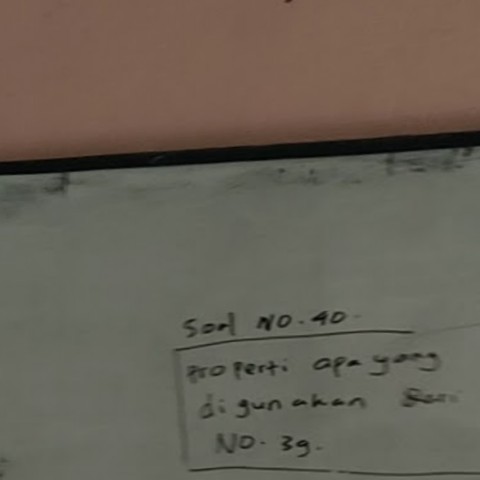 Soal NO. 40.
Properti apa yang
di gunakan
NO. 39.